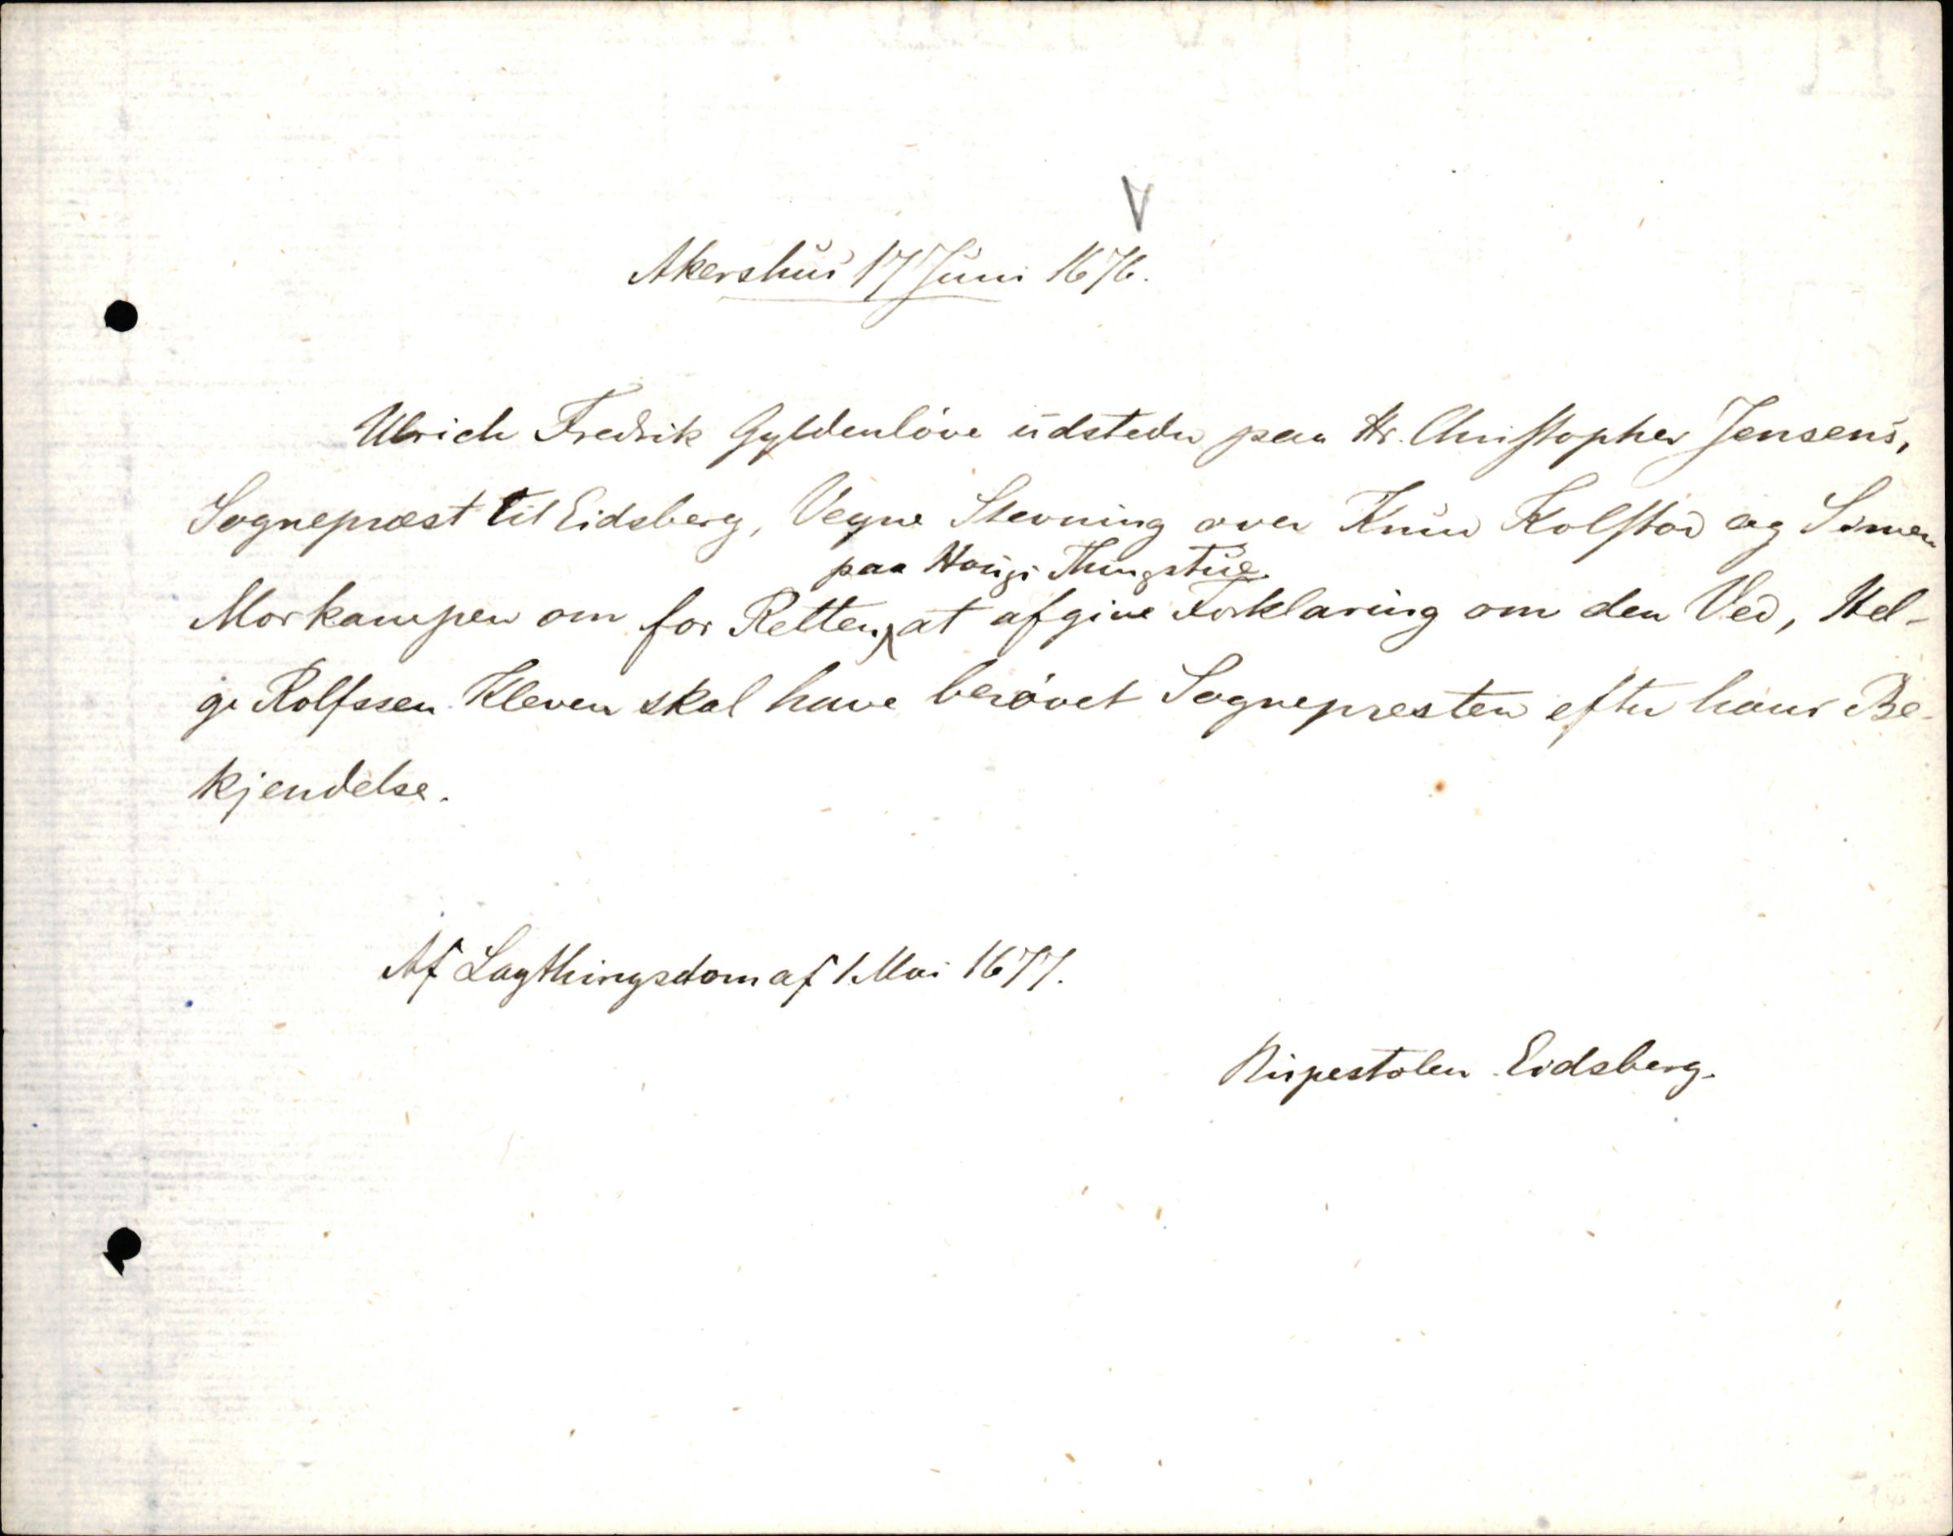 V
Akershus 17 Juni 1676.
Ulrich Fredrik Gyldenløve udsteder paa Hr. Christopher Jensens,
Sognepræst til Eidsberg, Vegne Stevning over Knud Kolstad og Simen
paa Haugs Thingstue
Morkampen om for Retten, at afgive Forklaring om den Ved, Hel-
ge Rolfssen Kleven skal have berøvet Sognepresten efter hans Be-
kjendelse.
Af Lagthingsdom af 1 Mai 1677.
Eidsberg.